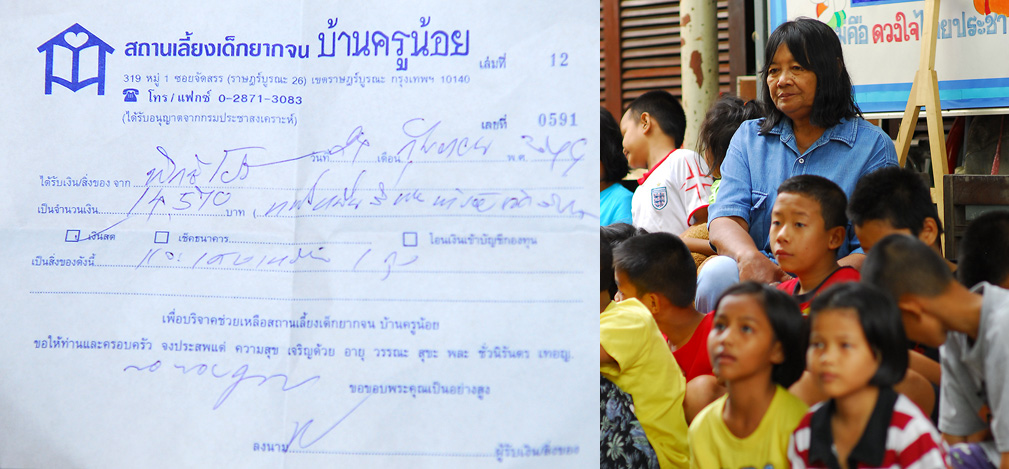 สถานเลี้ยงเด็กยากจน บ้านครูน้อย
เล่มที่ 12
319 หมู่ 1 ซอยจัดสรร (ราษฎร์บูรณะ 26) เขตราษฎร์บูรณะ กรุงเทพฯ 10140
☎ โทร/แฟกซ์ 0-2871-3083
(ได้รับอนุญาตจากกรมประชาสงเคราะห์)
เลขที่ 0591
วันที่ เดือน กันยายน พ.ศ.
ได้รับเงิน/สิ่งของ จาก
เป็นจำนวนเงิน 14,570 บาท
เงินสด เช็คธนาคาร โอนเงินเข้าบัญชีกองทุน
เป็นสิ่งของดังนี้
เพื่อบริจาคช่วยเหลือสถานเลี้ยงเด็กยากจน บ้านครูน้อย
ขอให้ท่านและครอบครัว จงประสพแต่ ความสุข เจริญด้วย อายุ วรรณะ สุขะ พละ ชั่วนิรันดร เทอญ.
ขอขอบพระคุณเป็นอย่างสูง
ลงนาม ผู้รับเงิน/สิ่งของ
ดวงใจ